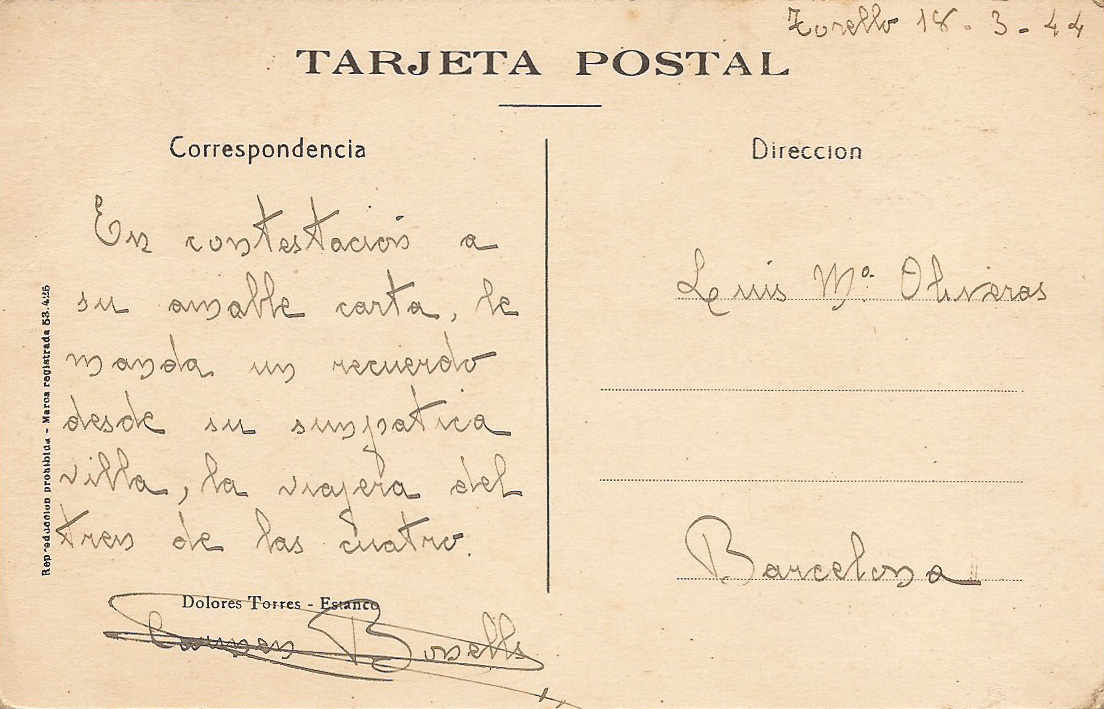 Torello 18-3-44
TARJETA POSTAL
Correspondencia
En contestación a
su amable carta, le
manda un recuerdo
desde su simpatica
villa, la viajera del
tren de las cuatro.
Dolores Torres - Estanco
Carmen Bonells
Reproduccion prohibida - Marca registrada 53.425
Direccion
Luis Mª. Oliveras
Barcelona